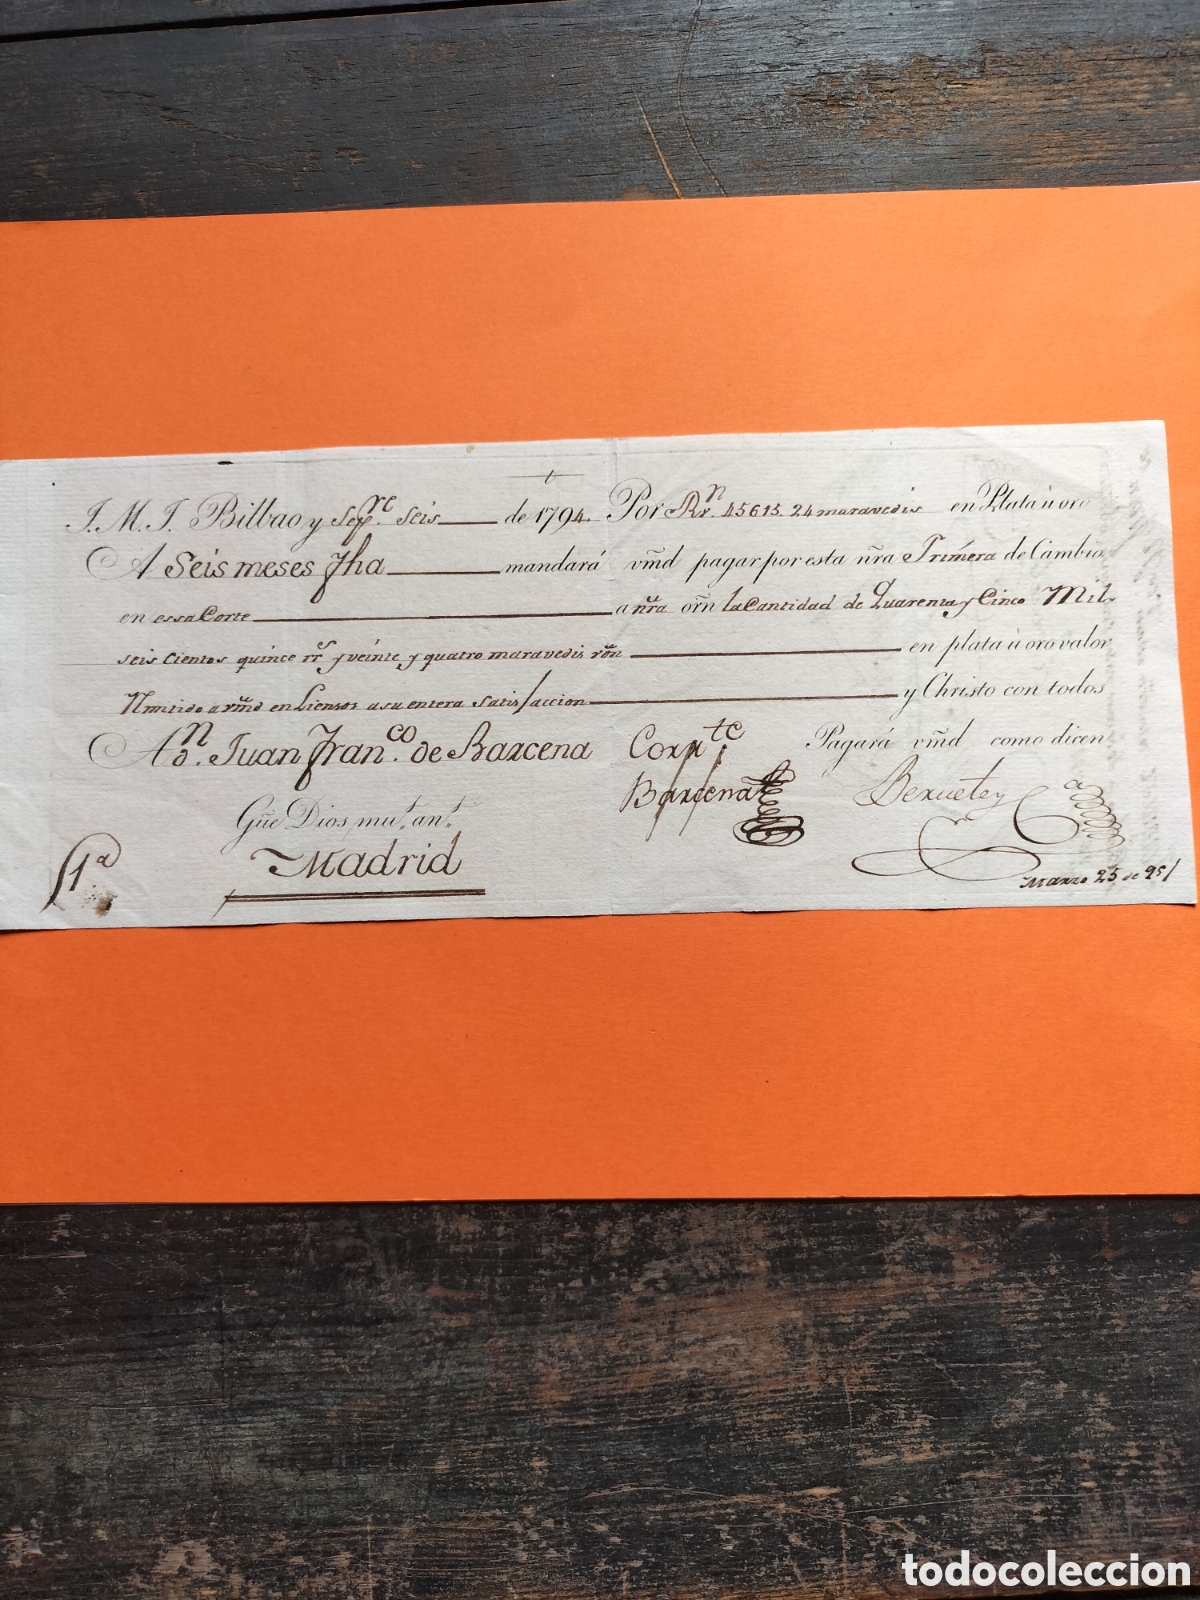 J. M. J. Bilbao y Sepre. Seis de 1794. Por Rn. 45615. 24 maravedis en Plata ù oro
A Seis meses fha mandará vm̃d pagar por esta ñra Primera de Cambio
en essa Corte a ñra orñ la Cantidad de Quarenta y Cinco Mil
seis cientos quince rrs. y veinte y quatro maravedis von en plata ù oro valor
Rmitido a vmd en Liensos a su entera Satisfaccion y Christo con todos
A dn. Juan Franco. de Barcena Pagará vm̃d como dicen
Corrte
Barcena Berueta y Ca
Gũe Dios mu.t an.t
Madrid
1a
Marzo 25 de 95/
todocoleccion